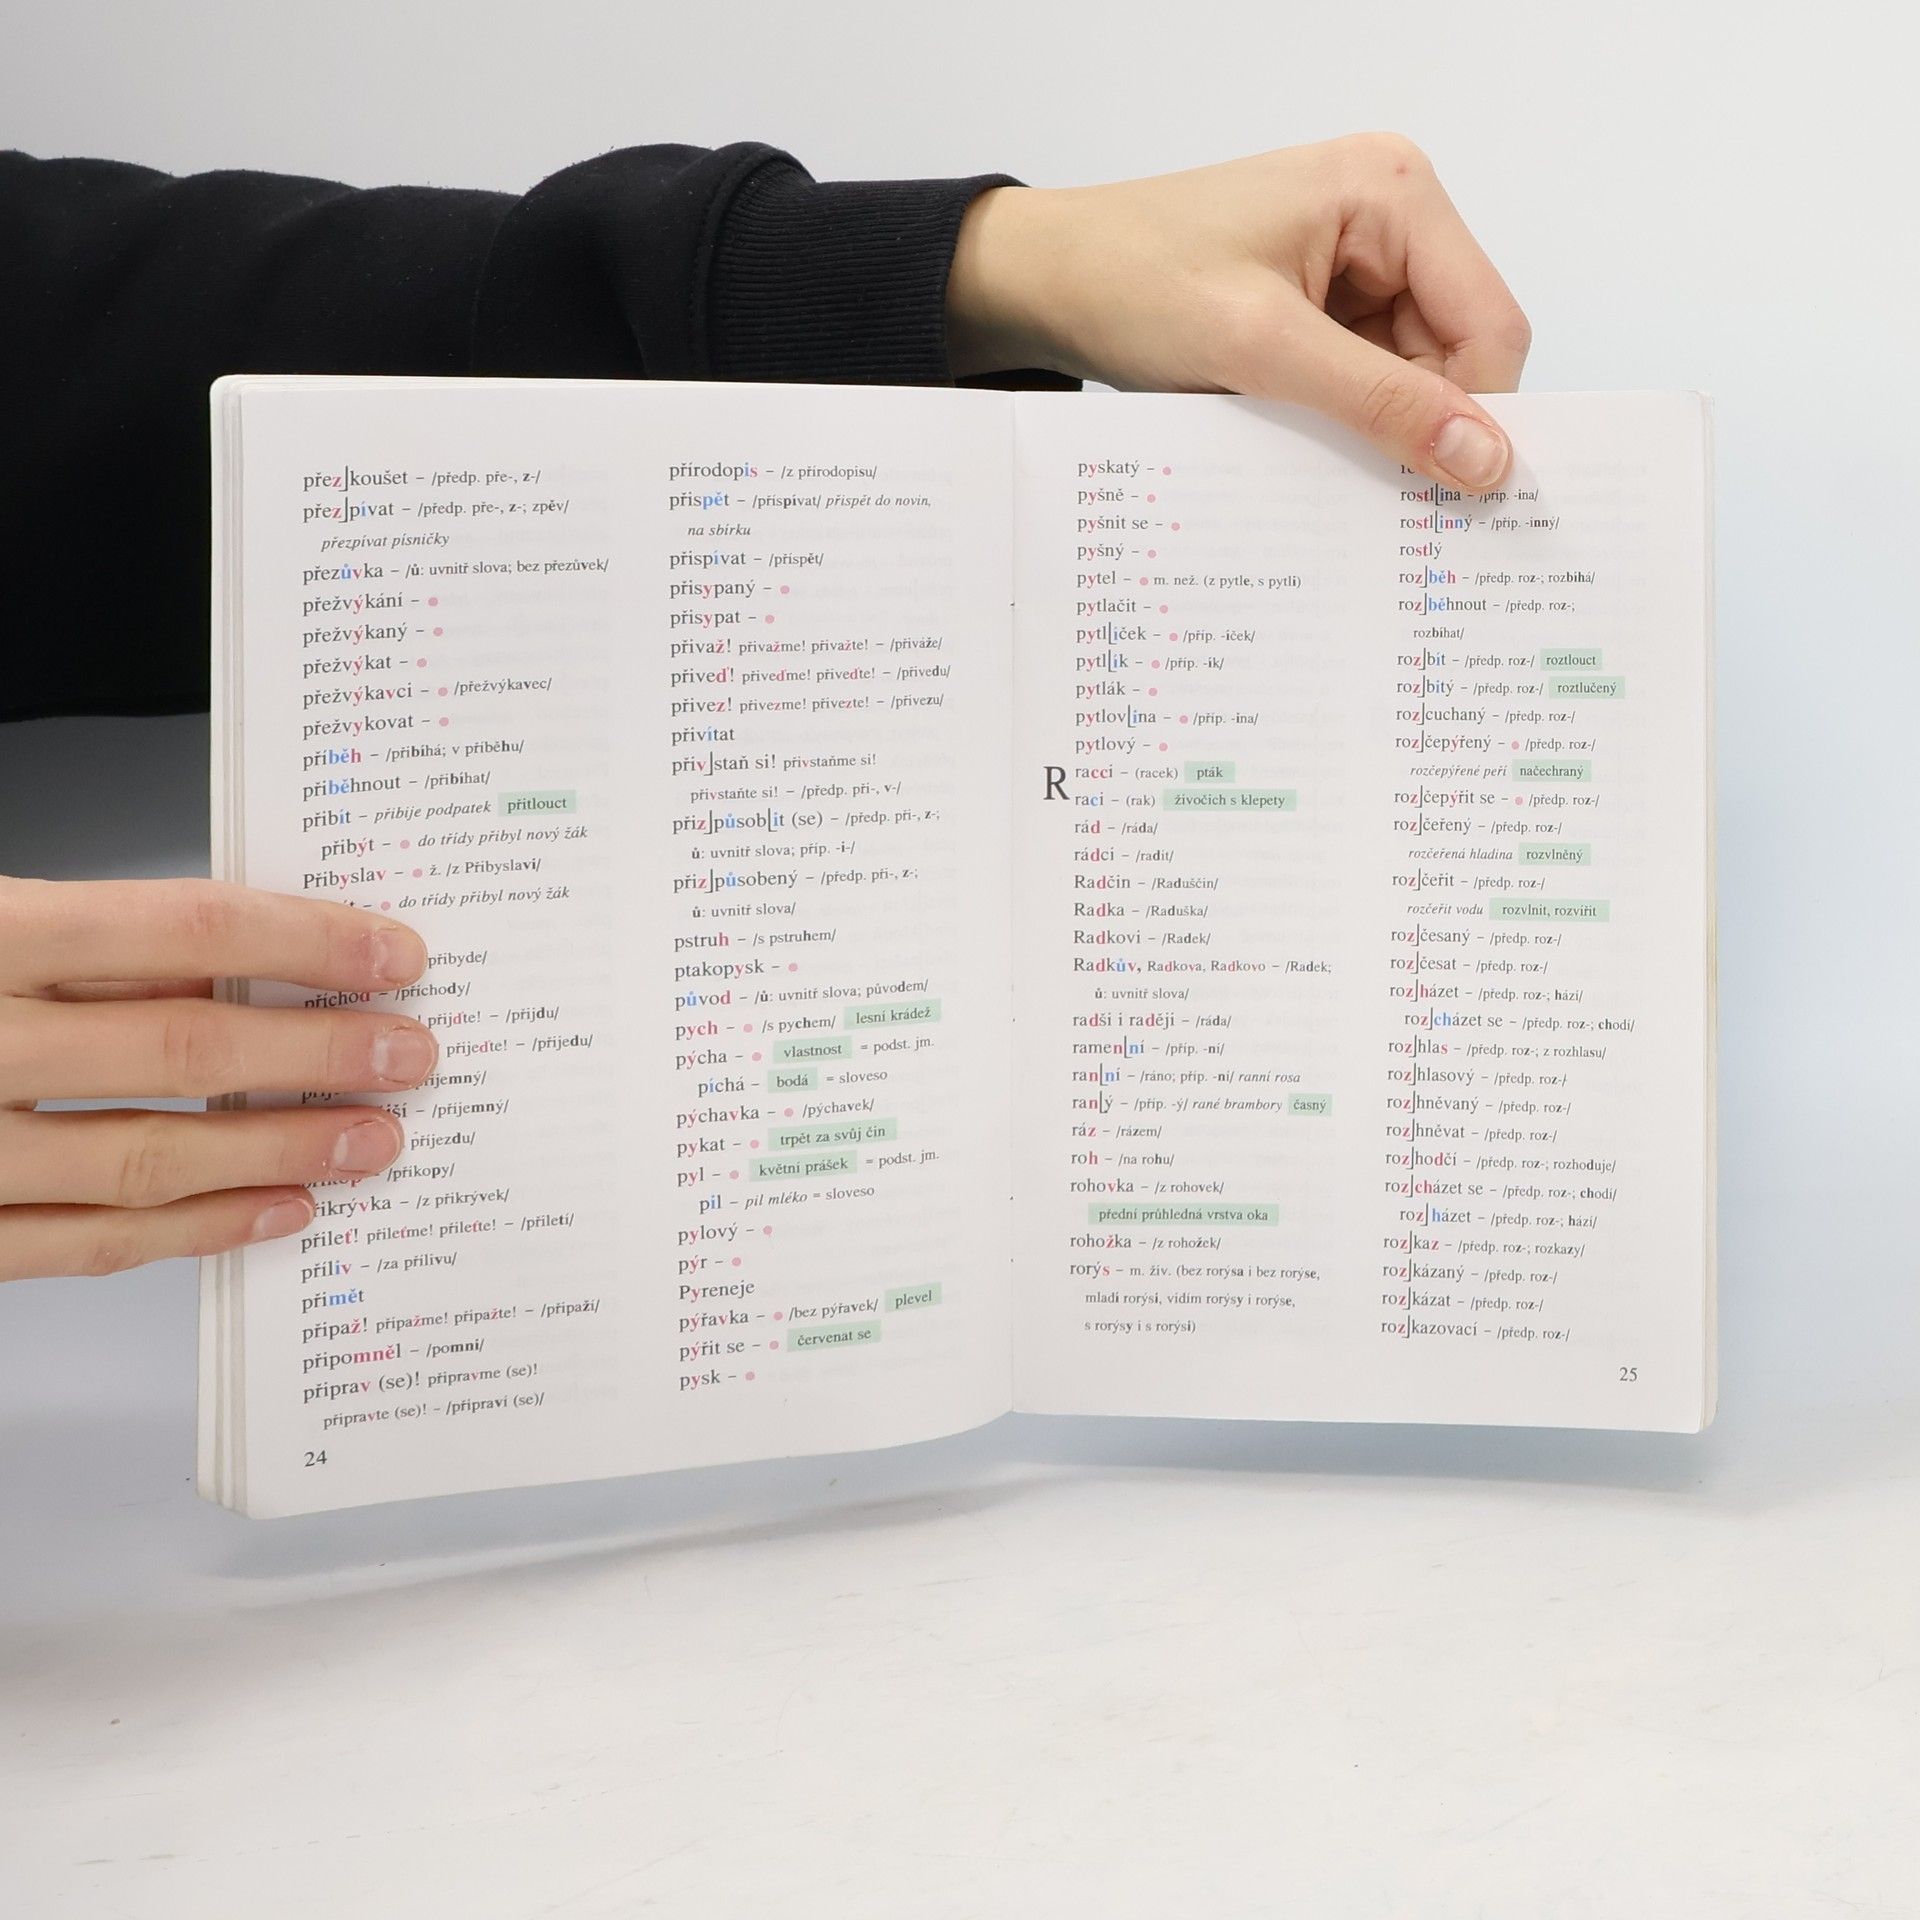 přez⌋koušet – /předp. pře-, z-/
přez⌋pívat – /předp. pře-, z-; zpěv/
přezpívat písničky
přezůvka – /ů: uvnitř slova; bez přezůvek/
přežvýkání – ●
přežvýkaný – ●
přežvýkat – ●
přežvýkavci – ● /přežvýkavec/
přežvykovat – ●
příběh – /přibíhá; v příběhu/
přiběhnout – /přibíhat/
přibít – přibije podpatek přitlouct
přibýt – ● do třídy přibyl nový žák
Přibyslav – ● ž. /z Přibyslavi/
– ● do třídy přibyl nový žák
přibyde/
příchod – /příchody/
přijďte! – /přijdu/
přijeďte! – /přijedu/
/příjemný/
– /příjemný/
příjezdu/
– /příkopy/
přikrývka – /z přikrývek/
přileť! přileťme! přileťte! – /přiletí/
příliv – /za přílivu/
přimět
připaž! připažme! připažte! – /připaží/
připomněl – /pomni/
připrav (se)! připravme (se)!
připravte (se)! – /připraví (se)/
24
přírodopis – /z přírodopisu/
přispět – /přispívat/ přispět do novin,
na sbírku
přispívat – /přispět/
přisypaný – ●
přisypat – ●
přivaž! přivažme! přivažte! – /přiváže/
přiveď! přiveďme! přiveďte! – /přivedu/
přivez! přivezme! přivezte! – /přivezu/
přivítat
přiv⌋staň si! přivstaňme si!
přivstaňte si! – /předp. při-, v-/
přiz⌋působ⌊it (se) – /předp. při-, z-;
ů: uvnitř slova; příp. -i-/
přiz⌋působený – /předp. při-, z-;
ů: uvnitř slova/
pstruh – /s pstruhem/
ptakopysk – ●
původ – /ů: uvnitř slova; původem/
pych – ● /s pychem/ lesní krádež
pýcha – ● vlastnost = podst. jm.
píchá – bodá = sloveso
pýchavka – ● /pýchavek/
pykat – ● trpět za svůj čin
pyl – ● květní prášek = podst. jm.
pil – pil mléko = sloveso
pylový – ●
pýr – ●
Pyreneje
pýřavka – ● /bez pýřavek/ plevel
pýřit se – ● červenat se
pysk – ●
pyskatý – ●
pyšně – ●
pyšnit se – ●
pyšný – ●
pytel – ● m. než. (z pytle, s pytli)
pytlačit – ●
pytl⌊íček – ● /příp. -íček/
pytl⌊ík – ● /příp. -ík/
pytlák – ●
pytlov⌊ina – ● /příp. -ina/
pytlový – ●
R
racci – (racek) pták
raci – (rak) živočich s klepety
rád – /ráda/
rádci – /radit/
Radčin – /Raduščin/
Radka – /Raduška/
Radkovi – /Radek/
Radkův, Radkova, Radkovo – /Radek;
ů: uvnitř slova/
radši i raději – /ráda/
ramen⌊ní – /příp. -ní/
ran⌊ní – /ráno; příp. -ní/ ranní rosa
ran⌊ý – /příp. -ý/ rané brambory časný
ráz – /rázem/
roh – /na rohu/
rohovka – /z rohovek/
přední průhledná vrstva oka
rohožka – /z rohožek/
rorýs – m. živ. (bez rorýsa i bez rorýse,
mladí rorýsi, vidím rorýsy i rorýse,
s rorýsy i s rorýsi)
rostl⌊ina – /příp. -ina/
rostl⌊inný – /příp. -inný/
rostlý
roz⌋běh – /předp. roz-; rozbíhá/
roz⌋běhnout – /předp. roz-;
rozbíhat/
roz⌋bít – /předp. roz-/ roztlouct
roz⌋bitý – /předp. roz-/ roztlučený
roz⌋cuchaný – /předp. roz-/
roz⌋čepýřený – ● /předp. roz-/
rozčepýřené peří načechraný
roz⌋čepýřit se – ● /předp. roz-/
roz⌋čeřený – /předp. roz-/
rozčeřená hladina rozvlněný
roz⌋čeřit – /předp. roz-/
rozčeřit vodu rozvlnit, rozvířit
roz⌋česaný – /předp. roz-/
roz⌋česat – /předp. roz-/
roz⌋házet – /předp. roz-; hází/
roz⌋cházet se – /předp. roz-; chodí/
roz⌋hlas – /předp. roz-; z rozhlasu/
roz⌋hlasový – /předp. roz-/
roz⌋hněvaný – /předp. roz-/
roz⌋hněvat – /předp. roz-/
roz⌋hodčí – /předp. roz-; rozhoduje/
roz⌋cházet se – /předp. roz-; chodí/
roz⌋házet – /předp. roz-; hází/
roz⌋kaz – /předp. roz-; rozkazy/
roz⌋kázaný – /předp. roz-/
roz⌋kázat – /předp. roz-/
roz⌋kazovací – /předp. roz-/
25